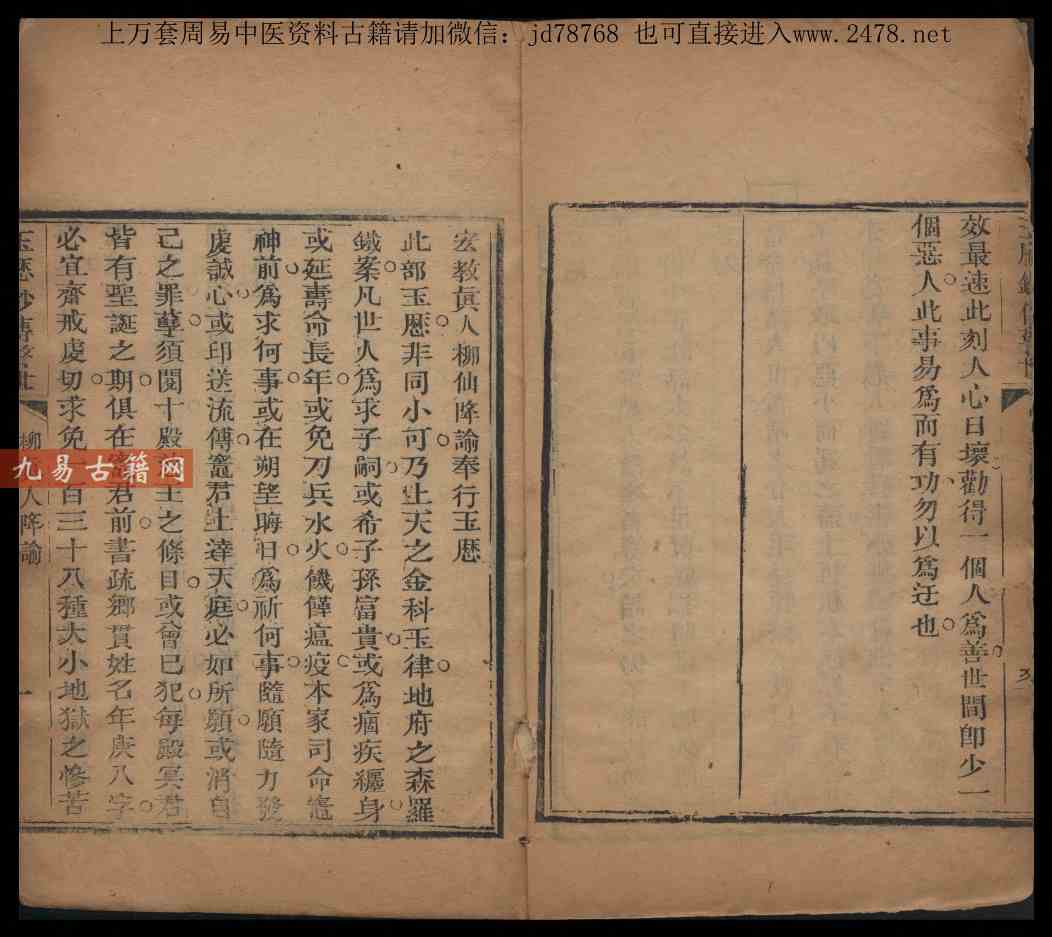 上万套周易中医资料古籍请加微信：jd78768 也可直接进入www.2478.net
效最速此刻人心日壞勸得一個人爲善世間卽少一
個惡人此事易爲而有功勿以爲迂也
宏教眞人柳仙降諭奉行玉歴
此部玉歴非同小可乃上天之金科玉律地府之森羅
鐵案凡世人爲求子嗣或希子孫富貴或爲痼疾纒身
或延壽命長年或免刀兵水火饑饉瘟疫本家司命竈
神前爲求何事或在朔望晦日爲祈何事隨願隨力發
虔誠心或印送流傳竈君上達天庭必如所願或消自
己之罪孽須閱十殿 王之條目或曾已犯每殿冥君
皆有聖誕之期俱在 君前書疏鄉貫姓名年庚八字
必宜齋戒虔切求免 百三十八種大小地獄之慘苦
玉歴鈔傳
柳 人降諭
一
九易古籍网